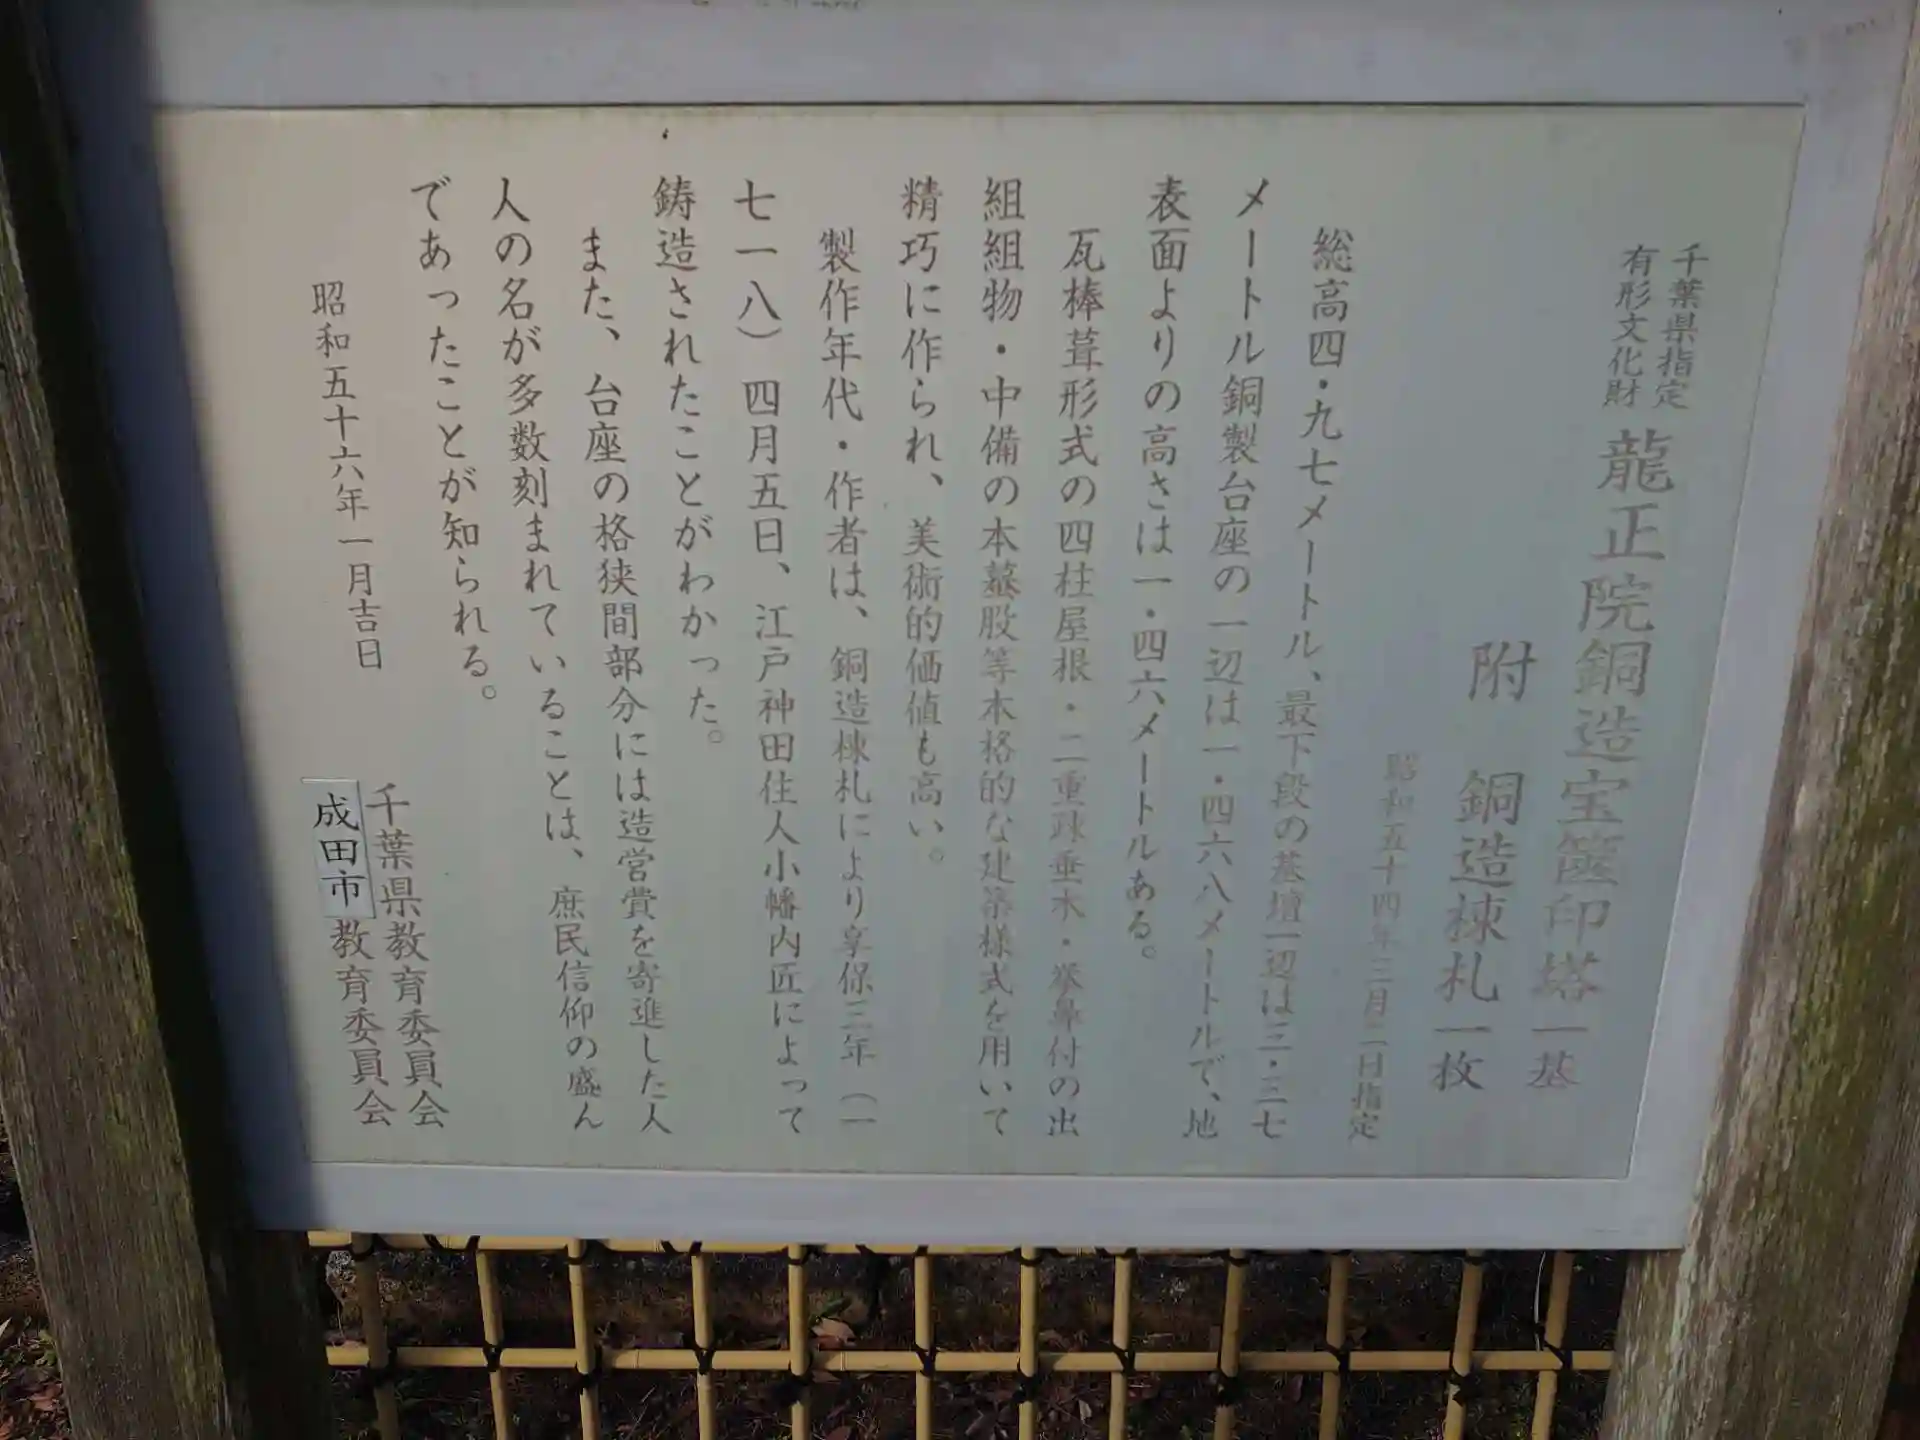 千葉県指定
有形文化財
龍正院銅造宝篋印塔一基
附　銅造棟札一枚
昭和五十四年三月二日指定
総高四・九七メートル、最下段の基壇一辺は三・三七
メートル銅製台座の一辺は一・四六八メートルで、地
表面よりの高さは一・四六メートルある。
瓦棒葺形式の四柱屋根・二重疎垂木・挙鼻付の出
組組物・中備の本蟇股等本格的な建築様式を用いて
精巧に作られ、美術的価値も高い。
製作年代・作者は、銅造棟札により享保三年（一
七一八）四月五日、江戸神田住人小幡内匠によって
鋳造されたことがわかった。
また、台座の格狭間部分には造営賞を寄進した人
人の名が多数刻まれていることは、庶民信仰の盛ん
であったことが知られる。
昭和五十六年一月吉日
千葉県教育委員会
成田市教育委員会